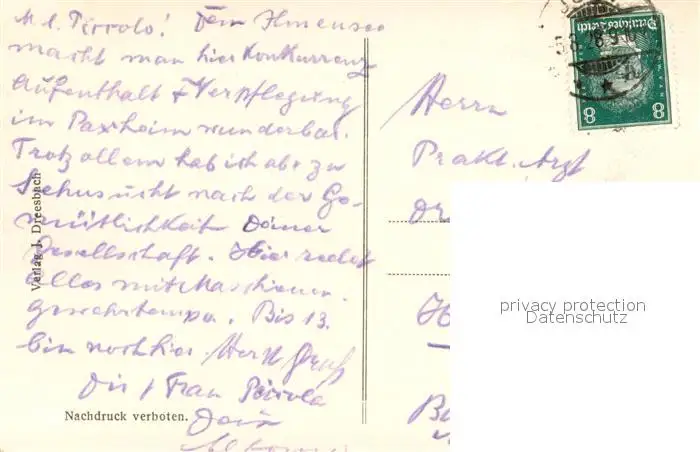 M l. Piccolo! Dem Ilmensee
macht man hier Konkurrenz
Aufenthalt & Verpflegung
im Parkheim wunderbar.
Trotz allem hab ich abr zu
Sehnsucht nach der Ge-
mütlichkeit Deiner
Gesellschaft. Hier redet
alles mit Maschienen-
gewehrtempo. Bis 13.
bin noch hier. Herzl Gruß
Dir & Frau Piccola
Dein
Verlag J. Dreesbach
Nachdruck verboten.
Herrn
Prakt. Arzt
Dr.
Deutsches Reich
8 8
privacy protection
Datenschutz